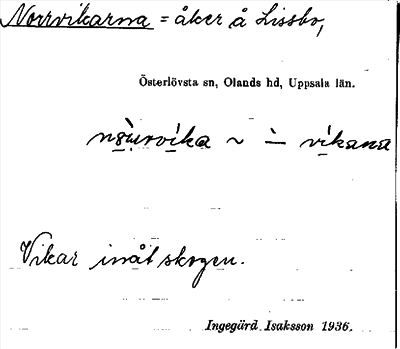 Norrvikarna = åker å Lissbo,
Österlövsta sn, Olands hd, Uppsala län.
~ vikana
Vikar inåt skogen.
Ingegärd Isaksson 1936.